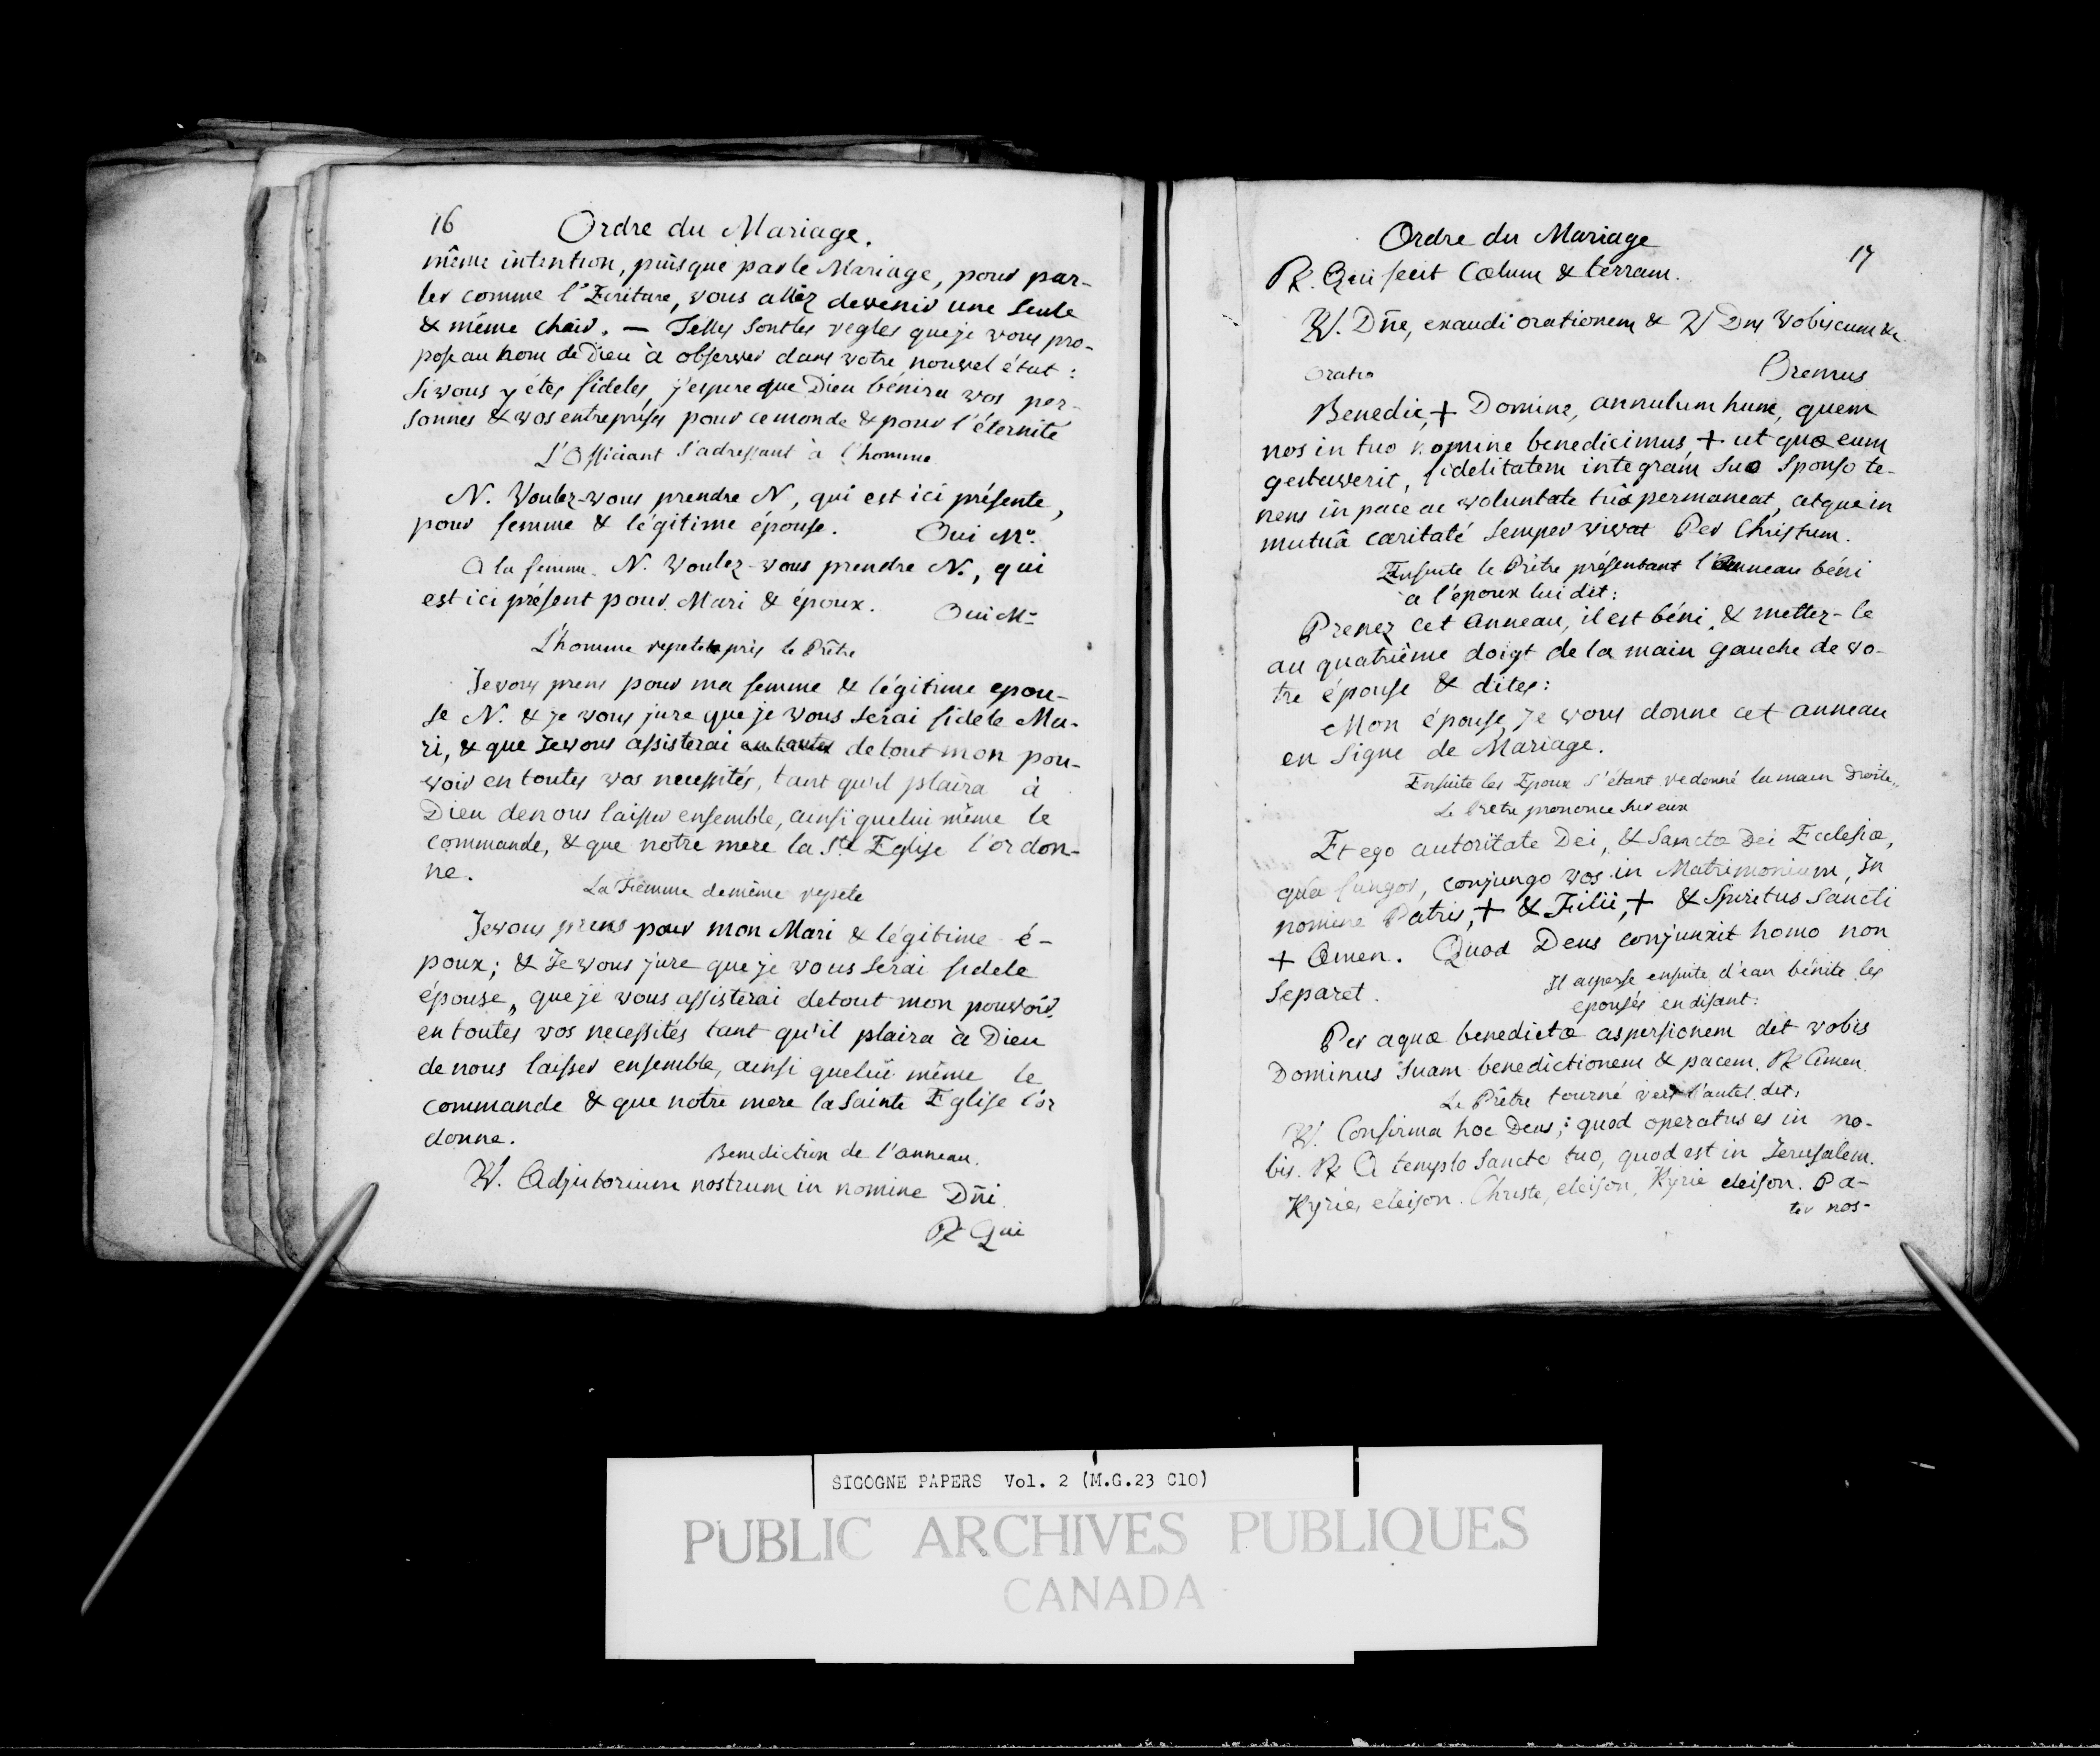 16 Ordre du Mariage.
même intention, puisque par le Mariage, pour par-
ler comme l'Ecriture, vous allez devenir une seule
& même chair. — Telles sont les regles que je vous pro-
pose au nom de Dieu à observer dans votre nouvel état :
Si vous y étes fideles, j'espere que Dieu bénira vos per-
sonnes & vos entreprises pour ce monde & pour l'éternité
L'Officiant s'adressant à l'homme
N. Voulez-vous prendre N, qui est ici présente,
pour femme & légitime épouse. Oui Mr.
A la femme. N. Voulez-vous prendre N., qui
est ici présent pour Mari & époux. Oui Mr
L'homme repete après le Prêtre
Je vous prens pour ma femme & légitime epou-
se N. & je vous jure que je vous serai fidele Ma-
ri, & que Je vous assisterai en toutes de tout mon pou-
voir en toutes vos necessités, tant qu'il plaira à
Dieu de nous laisser ensemble, ainsi que lui même le
commande, & que notre mere la Ste Eglise l'ordon-
ne.
La Femme de même repete
Je vous prens pour mon Mari & légitime é-
poux; & Je vous jure que je vous serai fidele
épouse, que je vous assisterai de tout mon pouvoir
en toutes vos necessités tant qu'il plaira à Dieu
de nous laisser ensemble, ainsi que lui même le
commande & que notre mere la Sainte Eglise l'or
donne.
Benediction de l'anneau.
V. Adjutorium nostrum in nomine Dñi.
R Qui
Ordre du Mariage
17
R. Qui fecit Cœlum & terram.
V. Dñe, exaudi orationem & V Dns Vobiscum &c.
Oratio Oremus
Benedic, + Domine, annulum hunc, quem
nos in tuo nomine benedicimus, + ut quæ eum
gestaverit, fidelitatem integram suo sponso te-
nens in pace ac voluntate tuâ permaneat, atque in
mutuâ caritate semper vivat Per Christum.
Ensuite le Prêtre présentant l'Anneau béni
à l'époux lui dit :
Prenez cet Anneau, il est béni, & mettez-le
au quatrième doigt de la main gauche de vo-
tre épouse & dites :
Mon épouse, Je vous donne cet anneau
en Signe de Mariage.
Ensuite les Epoux s'étant redonné la main Droite,
Le Prêtre prononce sur eux
Et ego autoritate Dei, & Sanctæ Dei Ecclesiæ,
quâ fungor, conjungo vos in Matrimonium, In
nomine Patris, + & Filii, + & Spiritus Sancti
+ Amen. Quod Deus conjunxit homo non
Separet. Il asperse ensuite d'eau bénite les
epousés en disant :
Per aquæ benedictæ aspersionem det vobis
Dominus suam benedictionem & pacem. R Amen.
Le Prêtre tourné vers l'autel dit,
V. Confirma hoc Deus; quod operatus es in no-
bis. R A templo Sancto tuo, quod est in Jerusalem.
Kyrie, eleison. Christe, eleison, Kyrie eleison. Pa-
ter nos-
SICOGNE PAPERS Vol. 2 (M.G.23 C10)
PUBLIC ARCHIVES PUBLIQUES
CANADA